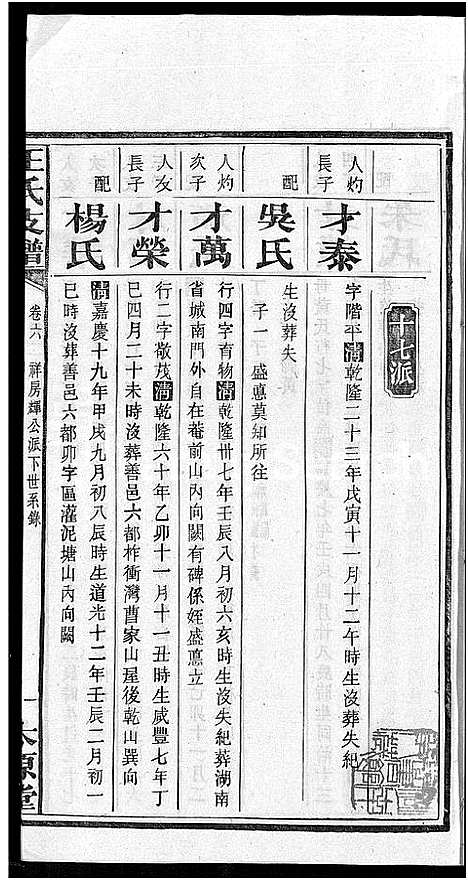 十七派
人灼長子
才泰
字階平清乾隆二十三年戊寅十一月十二午時生沒葬失紀
配
吳氏
生沒葬失
子一 盛惪莫知所往
人灼次子
才萬
行四字育物清乾隆卅七年壬辰八月初六亥時生沒失紀葬湖南
省城南門外自在菴前山內向闕有碑係姪盛惪立
人友長子
才榮
行二字敬茂清乾隆六十年乙卯十一月十一丑時生咸豐七年丁
巳四月二十未時沒葬善邑六都柞衝灣曹家山屋後乾山巽向
配
楊氏
清嘉慶十九年甲戌九月初八辰時生道光十二年壬辰二月初一
巳時沒葬善邑六都卯字區灌泥塘山內向闕
王氏支譜
卷六 祥房輝公派下世系錄
一
太原堂